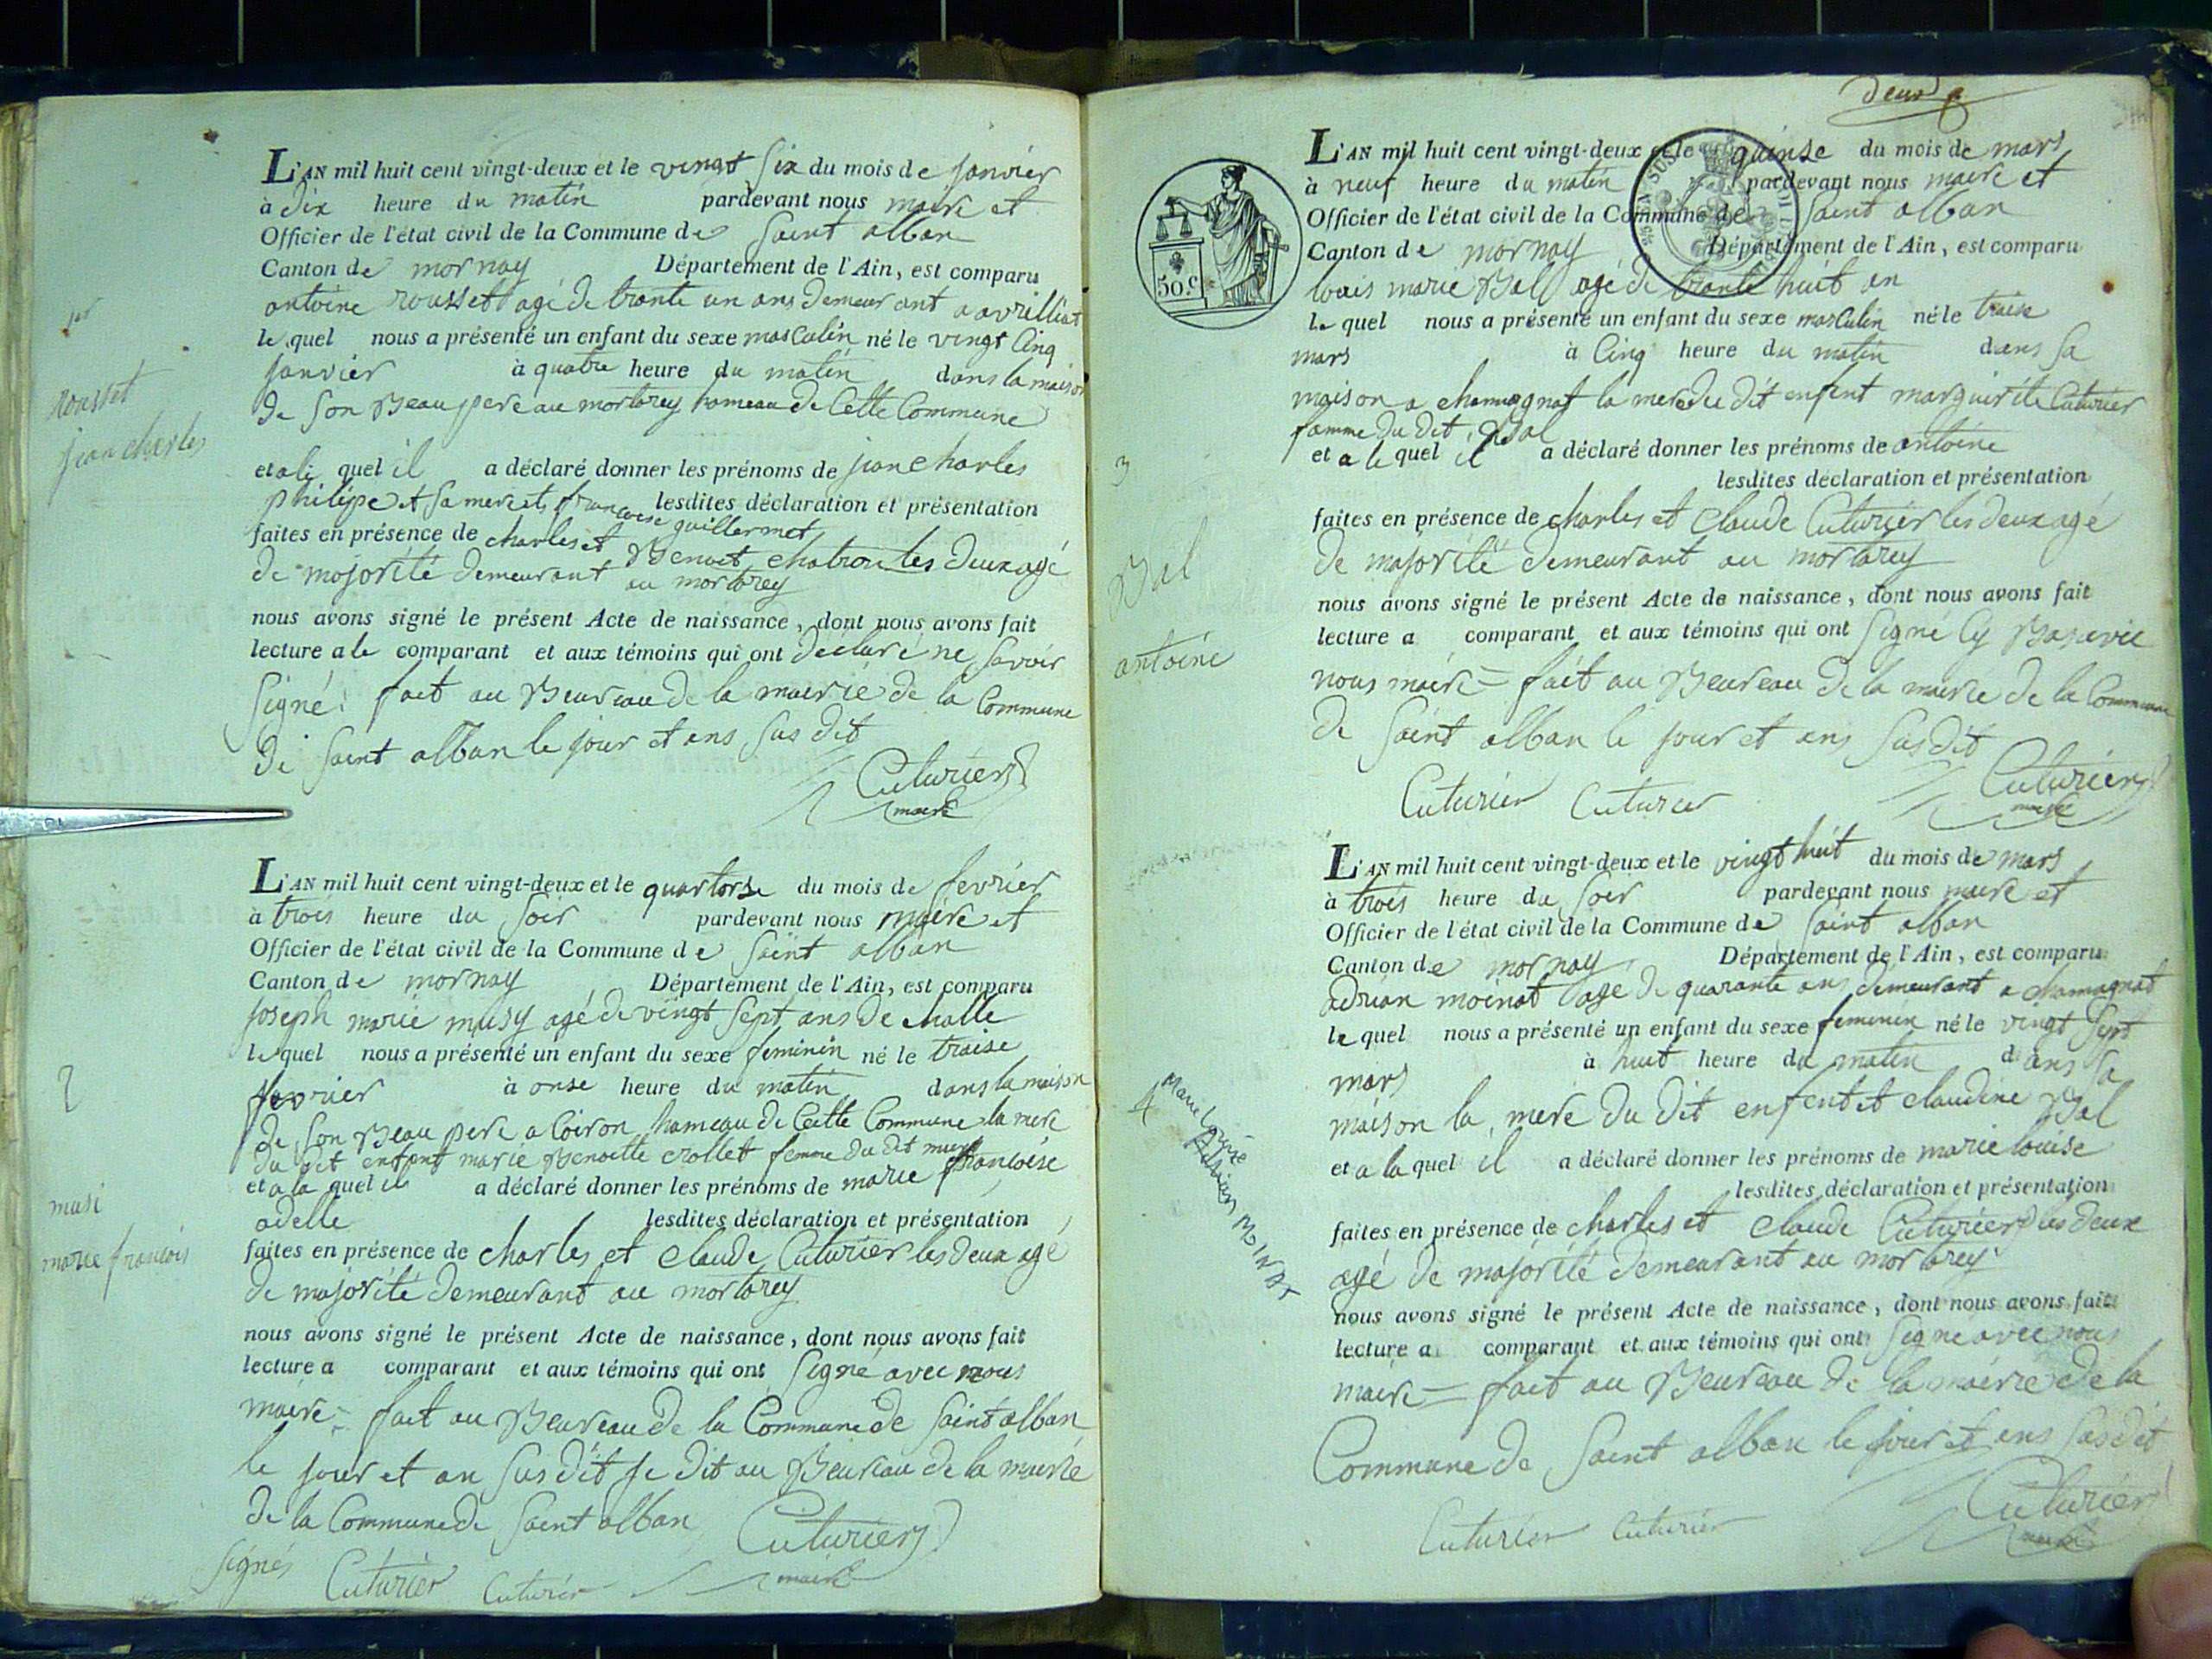 1er
rousset
jean charles
L'AN mil huit cent vingt-deux et le vingt six du mois de janvier
à dix heure du matin pardevant nous maire et
Officier de l'état civil de la Commune de Saint alban
Canton de mornay Département de l'Ain, est comparu
antoine rousset agé de trante un ans demeurant a avrilliat
le quel nous a présenté un enfant du sexe masculin né le vingt cinq
janvier à quatre heure du matin dans la maison
de son Beau pere au mortarey hameau de Cette Commune
et a le quel il a déclaré donner les prénoms de jean charles
philipe et sa mere et françoise guillermet lesdites déclaration et présentation
faites en présence de charles et Benoit chatron les deux agé
de majorité demeurant au mortarey
nous avons signé le présent Acte de naissance, dont nous avons fait
lecture a le comparant et aux témoins qui ont déclaré ne savoir
signé: fait au Beureau de la mairie de la Commune
de Saint alban le jour et ans sus dit
Cuturier
maire
2
musi
marie francois
L'AN mil huit cent vingt-deux et le quartorse du mois de fevrier
à trois heure du soir pardevant nous maire et
Officier de l'état civil de la Commune de Saint alban
Canton de mornay Département de l'Ain, est comparu
joseph marie musy agé de vingt sept ans de challe
le quel nous a présenté un enfant du sexe feminin né le traise
fevrier à onse heure du matin dans la maison
de son Beau pere a Coiron hameau de Cette Commune la mere
du dit enfant marie Benoitte crollet femme du dit musy
et a la quel il a déclaré donner les prénoms de marie françoise
adelle lesdites déclaration et présentation
faites en présence de charles et claude Cuturier les deux agé
de majorité demeurant au mortarey
nous avons signé le présent Acte de naissance, dont nous avons fait
lecture a comparant et aux témoins qui ont signé avec nous
maire = fait au Beureau de la Commune de Saint alban
le jour et an sus dit je dit au Beureau de la mairie
de la Commune de Saint alban Cuturier
signés Cuturier Cuturier maire
deux
50.c
3
Bal
antoine
L'AN mil huit cent vingt-deux et le quinse du mois de mars
à neuf heure du matin pardevant nous maire et
Officier de l'état civil de la Commune de Saint alban
Canton de mornay Département de l'Ain, est comparu
louis marie Bal agé de trante huit an
le quel nous a présenté un enfant du sexe masculin né le traise
mars à cinq heure du matin dans sa
maison a chamagnat la mere du dit enfent marguirite Cuturier
famme du dit Bal
et a le quel il a déclaré donner les prénoms de antoine
lesdites déclaration et présentation
faites en présence de charles et Claude Cuturier les deux agé
de majorité demeurant au mortarey
nous avons signé le présent Acte de naissance, dont nous avons fait
lecture a comparant et aux témoins qui ont signé
nous maire = fait au Beureau de la mairie de la Commune
de Saint alban le jour et ans sus dit
Cuturier Cuturier Cuturier
maire
4
Marie Louise
Adrian MOINAT
L'AN mil huit cent vingt-deux et le vingt huit du mois de mars
à trois heure du soir pardevant nous maire et
Officier de l'état civil de la Commune de Saint alban
Canton de mornay Département de l'Ain, est comparu
adrian moinat age de quarante ans demeurant a chamagnat
le quel nous a présenté un enfant du sexe feminin né le vingt sept
mars à huit heure du matin dans sa
maison la mere du dit enfent et claudine Bal
et a la quel il a déclaré donner les prénoms de marie louise
lesdites déclaration et présentation
faites en présence de charles et claude Cuturier les deux
agé de majorité demeurant au mortarey
nous avons signé le présent Acte de naissance, dont nous avons fait
lecture a comparant et aux témoins qui ont signé avec nous
maire = fait au Beureau de la mairie de la
Commune de Saint alban le jour et ans sus dit
Cuturier Cuturier Cuturier
maire